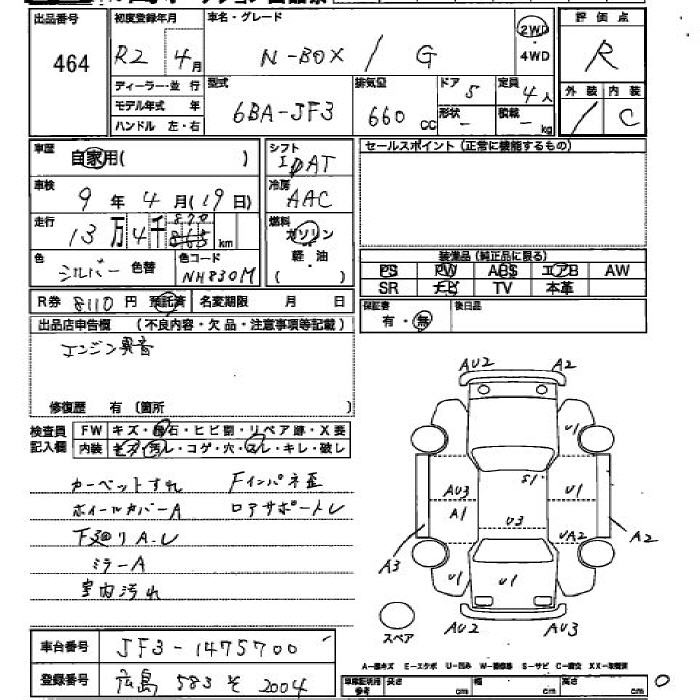 出品番号 464
初度登録年月 R2 4月
車名・グレード N-BOX / G
2WD・4WD
評価点 R
外装 / 内装 C
ディーラー・並行
モデル年式 年
ハンドル 左・右
型式 6BA-JF3
排気量 660 CC
ドア 5
形状 -
定員 4人
積載 - kg
車歴 自家用( )
車検 9年4月(19日)
走行 13万4千870 865 km
色 シルバー 色替
色コード NH830M
シフト IDAT
冷房 AAC
燃料 ガソリン・軽油 ( )
セールスポイント(正常に機能するもの)
装備品(純正品に限る)
PS PW ABS エアB AW
SR ナビ TV 本革
R券 8110円 預託済 名変期限 月 日
保証書 有・無
後日品
出品店申告欄 (不良内容・欠品・注意事項等記載)
エンジン異音
修復歴 有 (箇所 )
検査員記入欄
FW キズ・飛石・ヒビ割・リペア跡・X要
内装 キズ・汚レ・コゲ・穴・スレ・キレ・破レ
カーペットすれ Fインパネ歪
ホイールカバーA ロアサポートU
下廻りA.U
ミラーA
室内汚れ
AU2 A2
U1
S1
AU3 A1 U1
U3 UA2
A3 A2
U1 U1
AU2 AU3
スペア
車台番号 JF3-1475700
登録番号 広島 583 そ 2004
A-線キズ E-エクボ U-凹み W-補修跡 S-サビ C-腐食 XX-交換済
車庫証明用参考 長さ cm 幅 cm 高さ cm